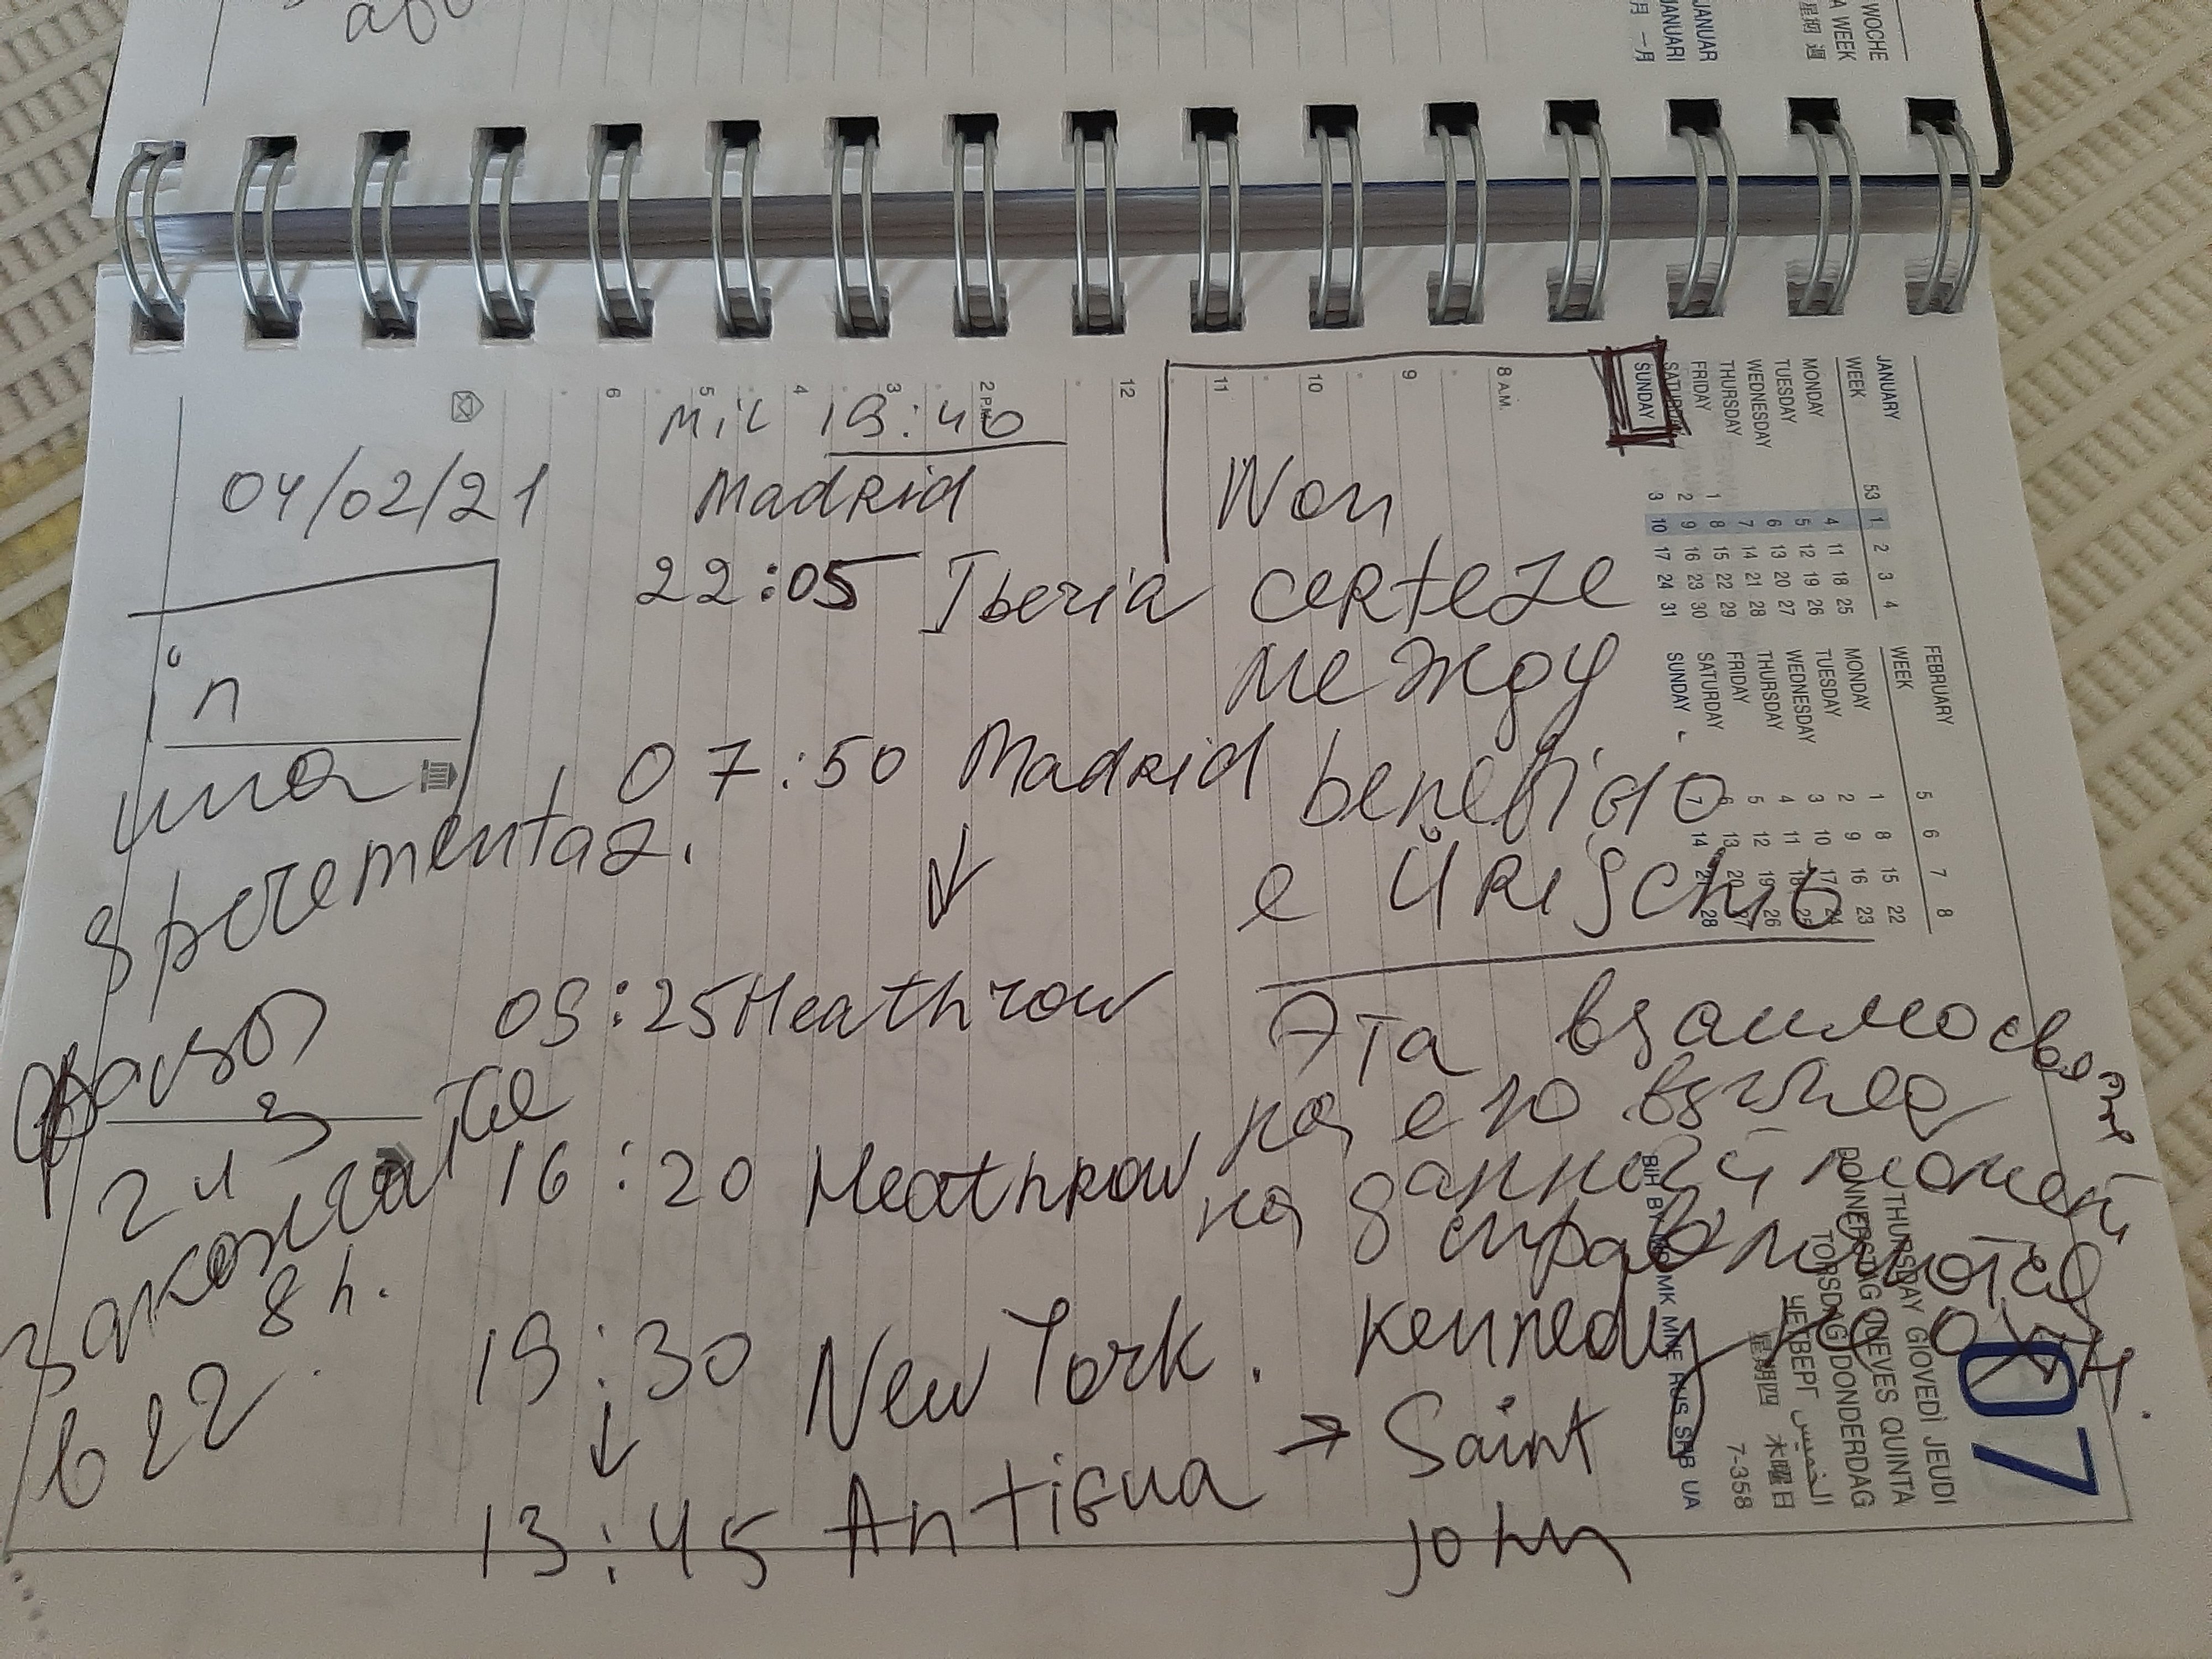 WOCHE
A WEEK
星期 週
JANUAR
JANUARI
月 一月
JANUARY
WEEK 53 1 2 3 4
MONDAY 4 11 18 25
TUESDAY 5 12 19 26
WEDNESDAY 6 13 20 27
THURSDAY 7 14 21 28
FRIDAY 1 8 15 22 29
SATURDAY 2 9 16 23 30
SUNDAY 3 10 17 24 31
FEBRUARY
WEEK 5 6 7 8
MONDAY 1 8 15 22
TUESDAY 2 9 16 23
WEDNESDAY 3 10 17 24
THURSDAY 4 11 18 25
FRIDAY 5 12 19 26
SATURDAY 6 13 20 27
SUNDAY 7 14 21 28
8 A.M.
9
10
11
12
2 P.M.
3
4
5
6
04/02/21
in
una
sperementaz.
фаза
2 и 3
закончатся
в 22
8 h.
Mil 19:40
Madrid
22:05 Iberia
07:50 Madrid
↓
09:25 Heathrow
16:20 Heathrow
19:30 New York. Kennedy
↓
13:45 Antigua → Saint
John
Non
certeze
между
beneficio
e il rischio
Эта взаимосвязь
на его взгляд
на данный момент
07
THURSDAY GIOVEDÌ JEUDI
DONNERSTAG QUINTA
TORSDAG DONDERDAG
ЧЕТВЕРГ الخميس
星期四 木曜日
7-358
BIH BY MK MNE RUS SRB UA